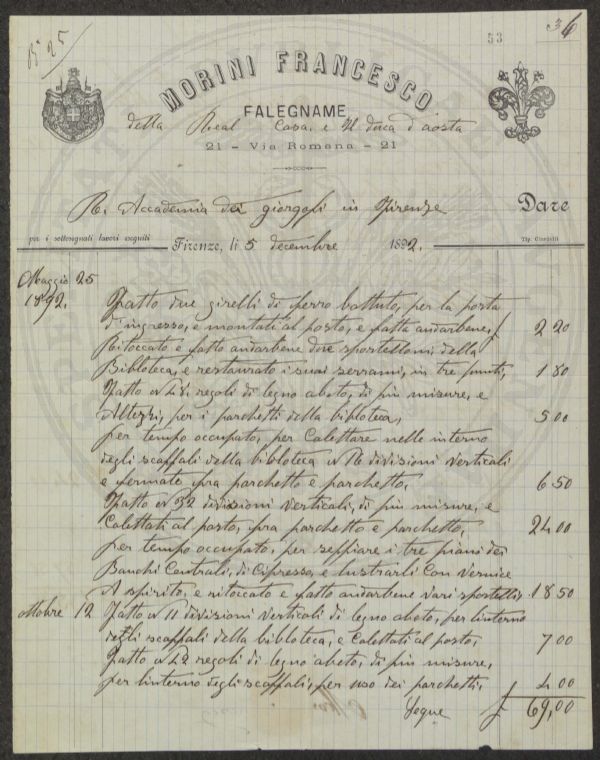 B 25
53
36
MORINI FRANCESCO
FALEGNAME
della Real Casa. e Il duca d'aosta
21 – Via Romana – 21
R. Accademia dei giorgofi in Firenze
Dare
per i sottosegnati lavori eseguiti
Firenze, li 5 decembre 1892.
Maggio 25
1892.
Fatto due girelli di ferro battuto, per la porta
d'ingresso, e montati al posto, e fatta andarbene, £ 2 20
Ritoccato e fatto andarbene dove sportelloni della
Biblioteca, e restaurato i suoi serrami, in tre punti, 1 80
Fatto N 48. regoli di legno abeto, di più misure, e
Altezzi, per i parchetti della bibloteca, 5 00
per tempo occupato, per Calettare nelle interno
degli scaffali della bibloteca N 76 divisioni verticali
e fermate fra parchetto e parchetto, 6 50
Fatto N 32 divisioni verticali, di più misure, e
Calettati al posto, fra parchetto e parchetto, 24 00
per tempo occupato, per seppiare i tre piani dei
Banchi Centrali, di Cipresso, e lustrarli Con vernice
A spirito, e ritoccato e fatto andarbene vari sportelli. 18 50
ottobre 12 Fatto N 11 divisioni verticali di legno abeto, per linterno
degli scaffali della bibloteca, e Calettati al posto, 7 00
Fatto N 42 regoli di legno abeto, di più misure,
per linterno degli scaffali, per uso dei parchetti, £ 4 00
Segue £ 69,00